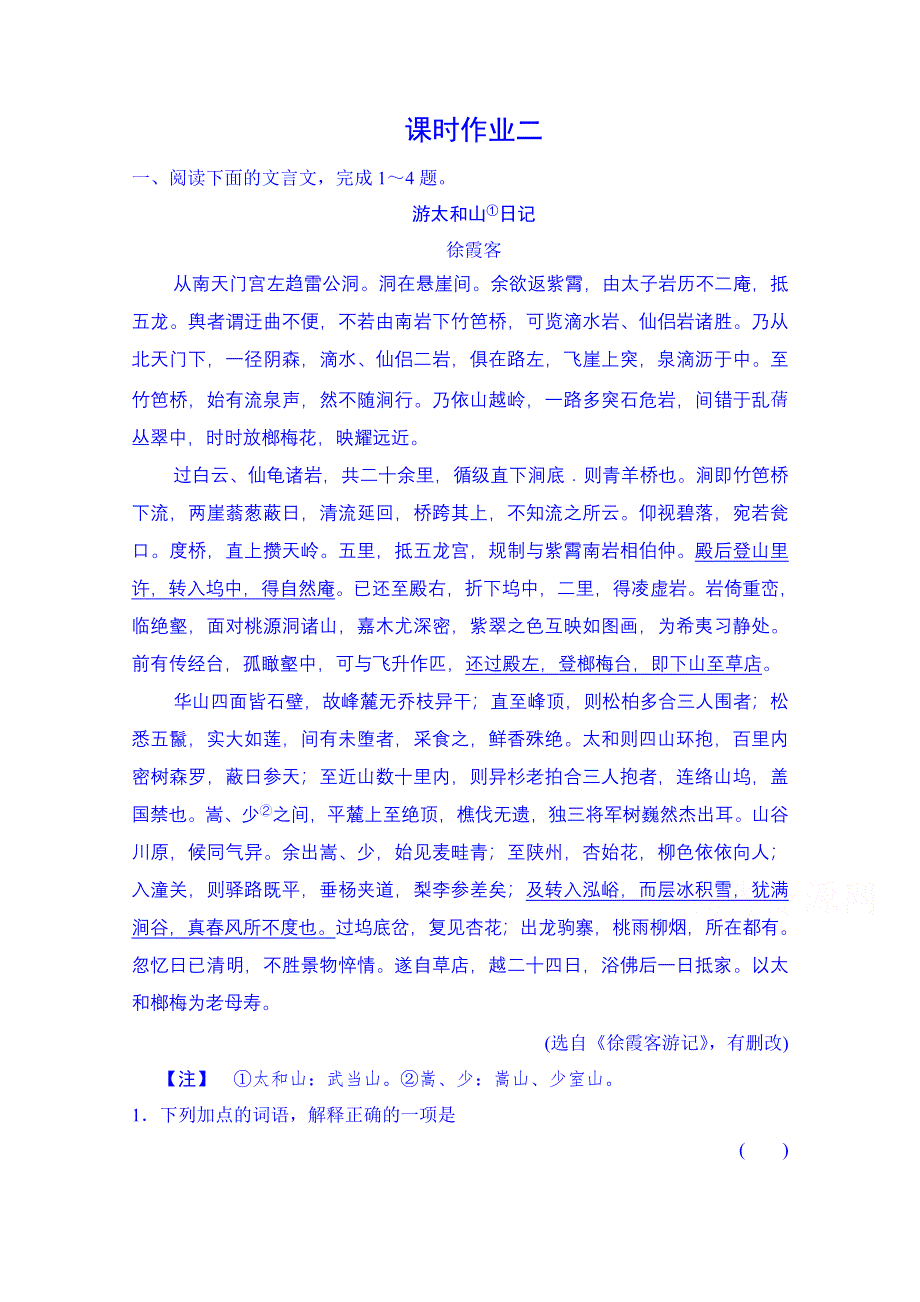 课时作业二
一、阅读下面的文言文，完成1～4题。
游太和山①日记
徐霞客
从南天门宫左趋雷公洞。洞在悬崖间。余欲返紫霄，由太子岩历不二庵，抵
五龙。舆者谓迂曲不便，不若由南岩下竹笆桥，可览滴水岩、仙侣岩诸胜。乃从
北天门下，一径阴森，滴水、仙侣二岩，俱在路左，飞崖上突，泉滴沥于中。至
竹笆桥，始有流泉声，然不随涧行。乃依山越岭，一路多突石危岩，间错于乱蒨
丛翠中，时时放榔梅花，映耀远近。
过白云、仙龟诸岩，共二十余里，循级直下涧底．则青羊桥也。涧即竹笆桥
下流，两崖蓊葱蔽日，清流延回，桥跨其上，不知流之所云。仰视碧落，宛若瓮
口。度桥，直上攒天岭。五里，抵五龙宫，规制与紫霄南岩相伯仲。殿后登山里
许，转入坞中，得自然庵。已还至殿右，折下坞中，二里，得凌虚岩。岩倚重峦，
临绝壑，面对桃源洞诸山，嘉木尤深密，紫翠之色互映如图画，为希夷习静处。
前有传经台，孤瞰壑中，可与飞升作匹，还过殿左，登榔梅台，即下山至草店。
华山四面皆石壁，故峰麓无乔枝异干；直至峰顶，则松柏多合三人围者；松
悉五鬣，实大如莲，间有未堕者，采食之，鲜香殊绝。太和则四山环抱，百里内
密树森罗，蔽日参天；至近山数十里内，则异杉老拍合三人抱者，连络山坞，盖
国禁也。嵩、少②之间，平麓上至绝顶，樵伐无遗，独三将军树巍然杰出耳。山谷
川原，候同气异。余出嵩、少，始见麦畦青；至陕州，杏始花，柳色依依向人；
入潼关，则驿路既平，垂杨夹道，梨李参差矣；及转入泓峪，而层冰积雪，犹满
涧谷，真春风所不度也。过坞底岔，复见杏花；出龙驹寨，桃雨柳烟，所在都有。
忽忆日已清明，不胜景物悴情。遂自草店，越二十四日，浴佛后一日抵家。以太
和榔梅为老母寿。
(选自《徐霞客游记》，有删改)
【注】　①太和山：武当山。②嵩、少：嵩山、少室山。
1．下列加点的词语，解释正确的一项是
(　　)